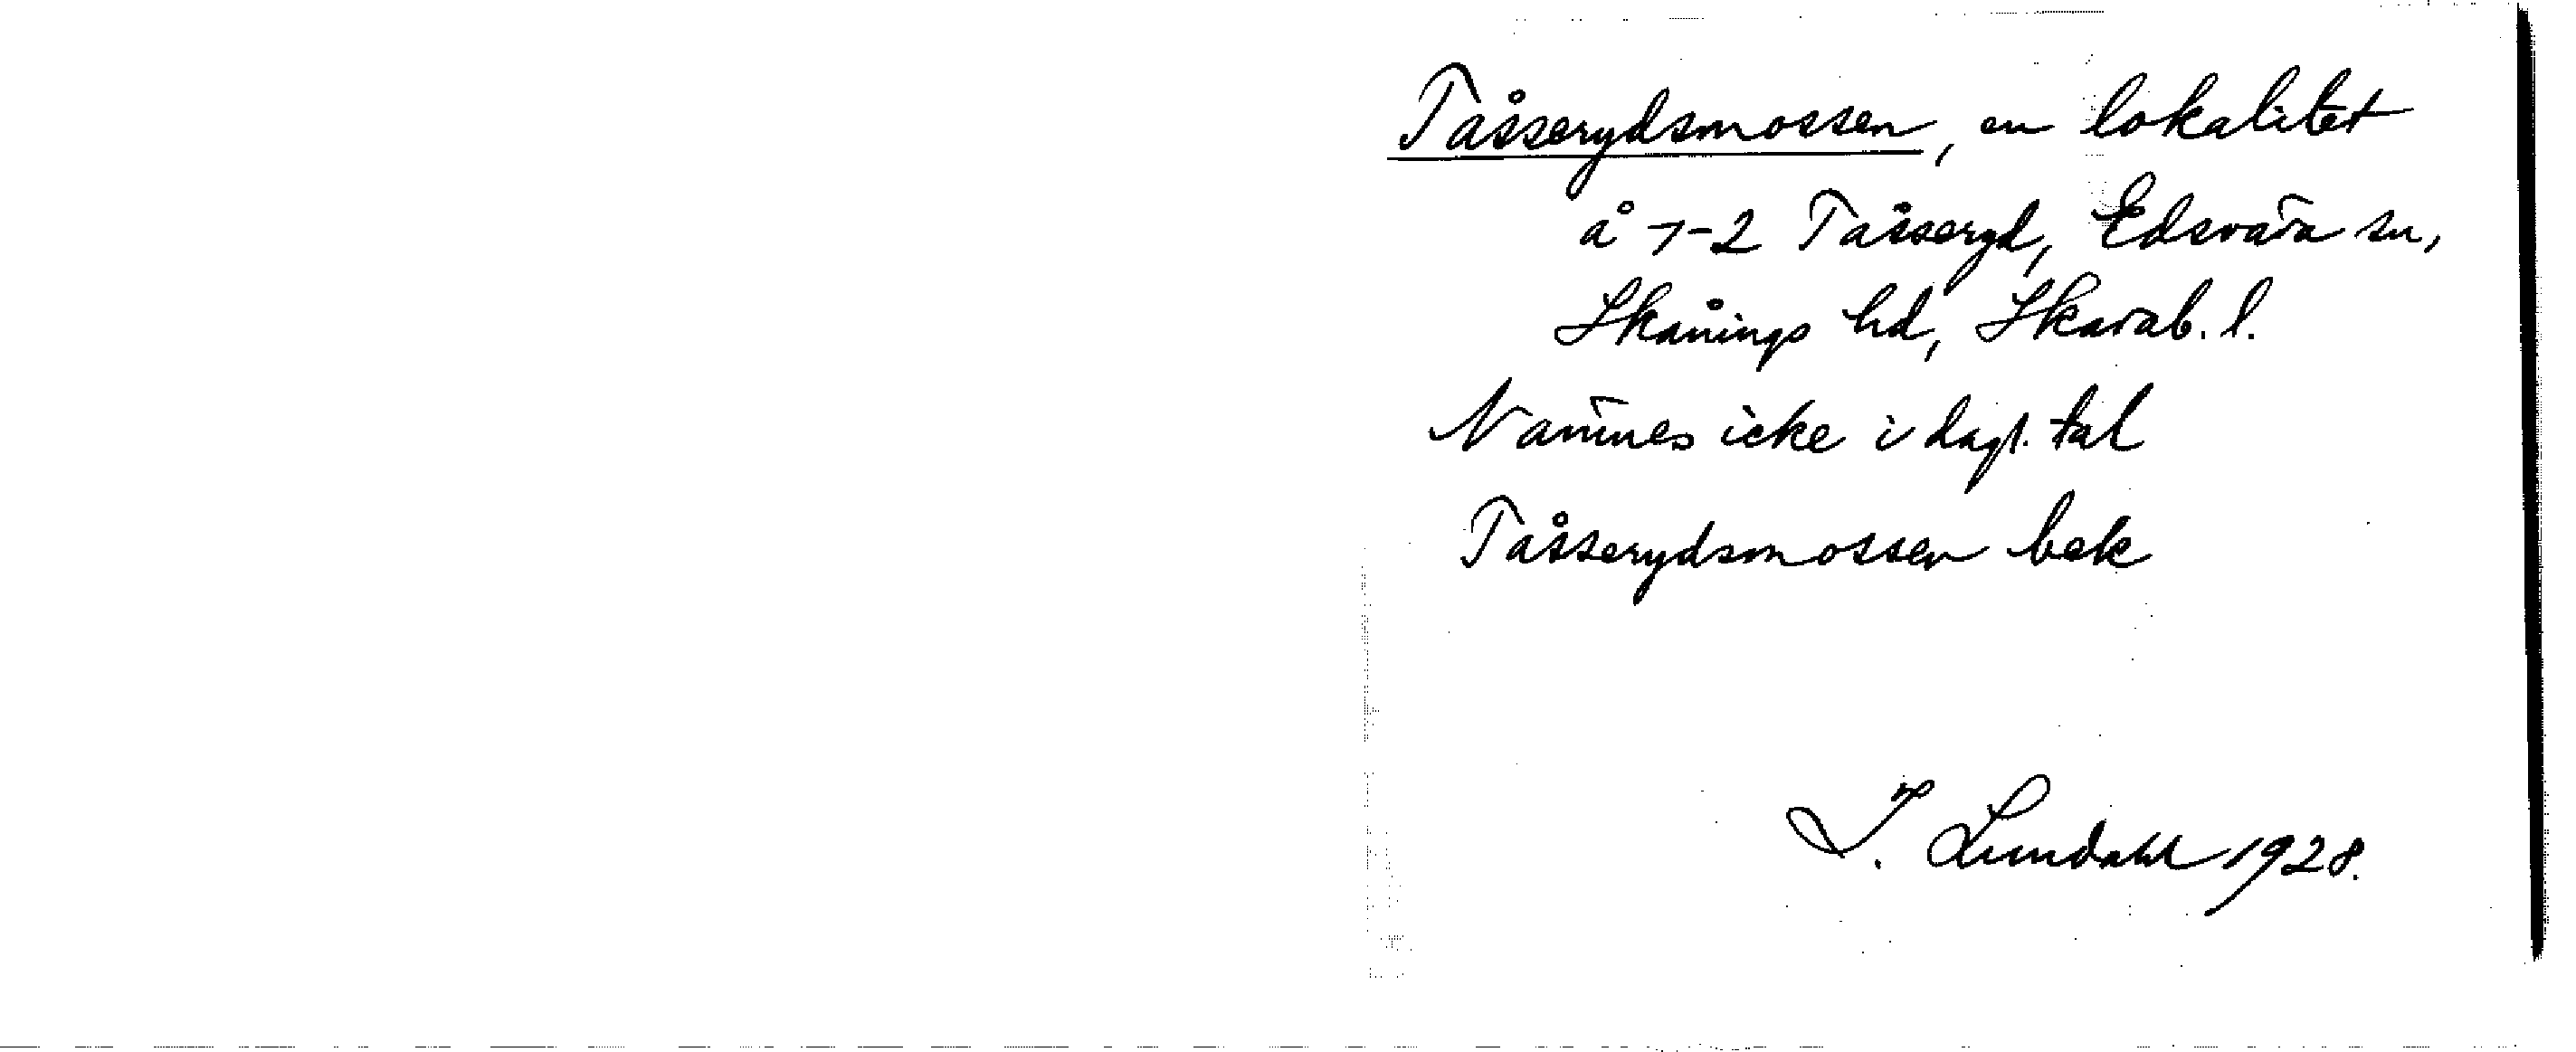 Tåsserydsmossen, en lokalitet
å 1-2 Tåsseryd, Edsvära sn,
Skånings hd, Skarab. l.
Nämnes icke i dagl. tal
Tåsserydsmossen bek
I. Lundahl 1928.